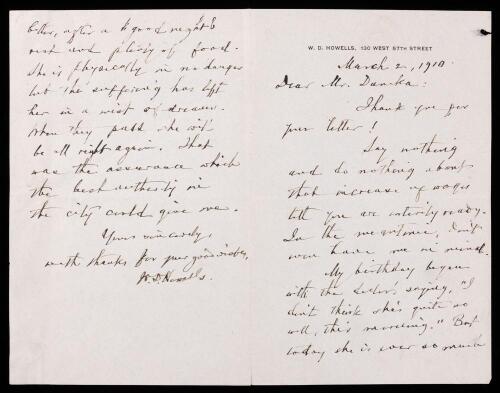 W. D. HOWELLS, 130 WEST 57TH STREET
March 2, 1910.
Dear Mr. Duneka:
Thank you for
your letter!
Say nothing
and do nothing about
that increase of wages
till you are entirely ready.
In the meantime, don't
even have me in mind.
My birthday began
with the doctor's saying, "I
don't think she's quite so
well, this morning." But
today she is ever so much
better, after a good night's
rest and plenty of food.
She is physically in no danger
but the suffering has left
her in a mist of dreams.
When they pass she will
be all right again. That
was the assurance which
the best authority in
the city could give me.
Yours sincerely,
with thanks for your good wishes,
W. D. Howells.